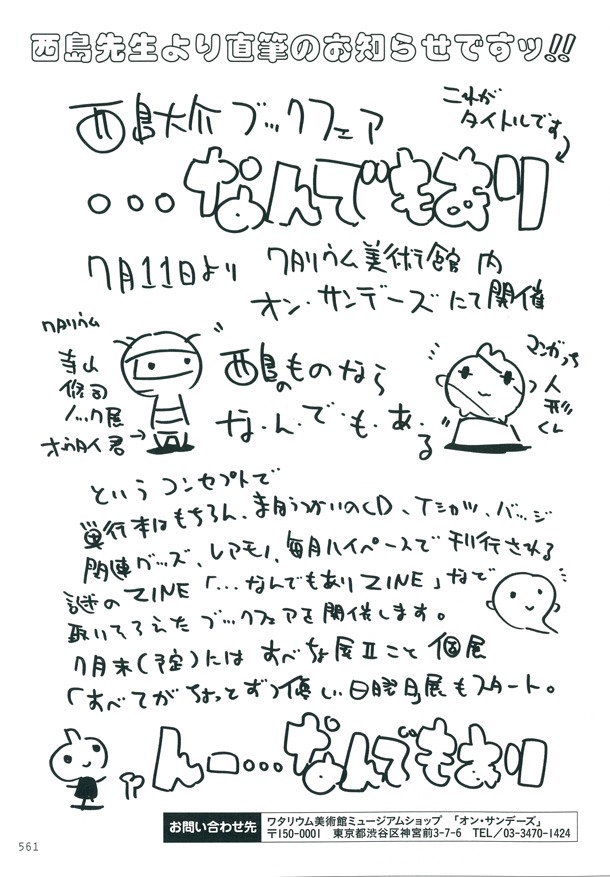 西島先生より直筆のお知らせですッ!!
西島大介 ブックフェア
これが
タイトルです
...なんでもあり
7月11日より ワタリウム美術館 内
オン・サンデーズにて開催
ワタリウム
寺山
修司
ノック展
オウタイ君→
西島のものなら
な・ん・で・も・あ・る
マンガっち
人
形
くん
というコンセプトで
単行本はもちろん、まほうつかいのCD、Tシャツ、バッジ
関連グッズ、レアモノ、毎月ハイペースで刊行される
謎のZINE「...なんでもありZINE」など
取りそろえたブックフェアを開催します。
7月末(予定)には すべちょ展II こと 個展
「すべてがちょっとずつ優しい日曜月展もスタート。
んー...なんでもあり
お問い合わせ先
ワタリウム美術館ミュージアムショップ 「オン・サンデーズ」
〒150-0001 東京都渋谷区神宮前3-7-6 TEL/03-3470-1424
561